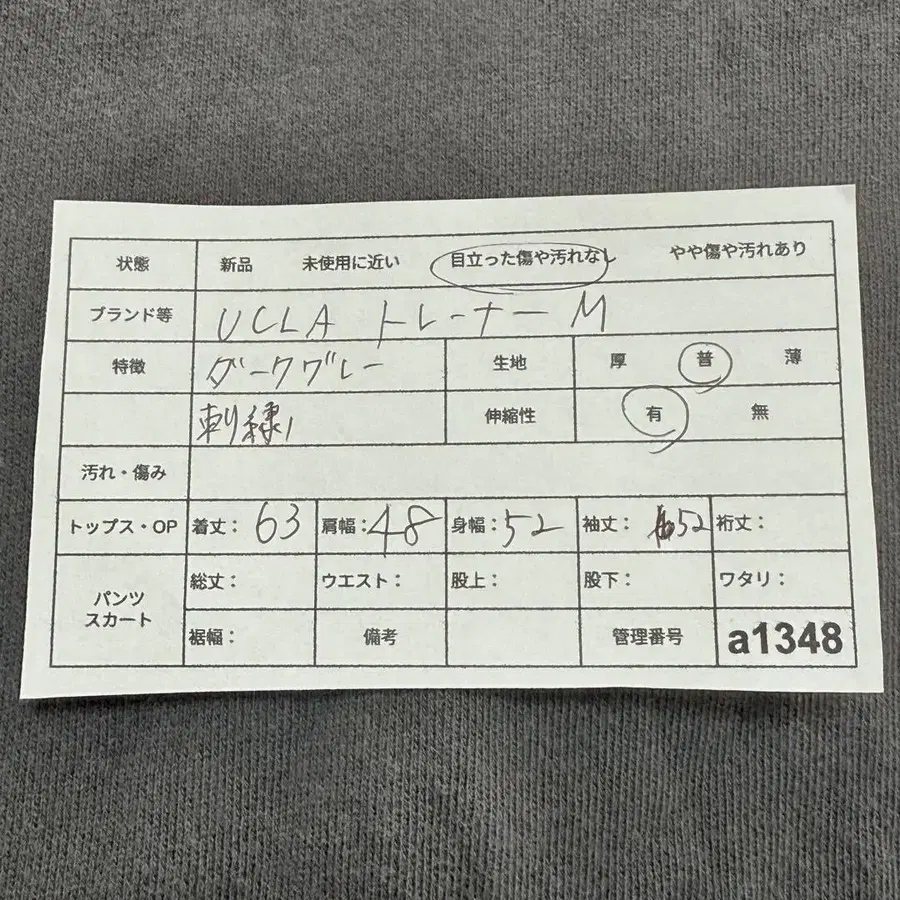 状態 新品 未使用に近い 目立った傷や汚れなし やや傷や汚れあり
ブランド等 UCLA トレーナー M
特徴 ダークグレー 生地 厚 普 薄
刺繍 伸縮性 有 無
汚れ・傷み
トップス・OP 着丈: 63 肩幅: 48 身幅: 52 袖丈: 52 裄丈:
パンツ スカート 総丈: ウエスト: 股上: 股下: ワタリ:
裾幅: 備考 管理番号 a1348